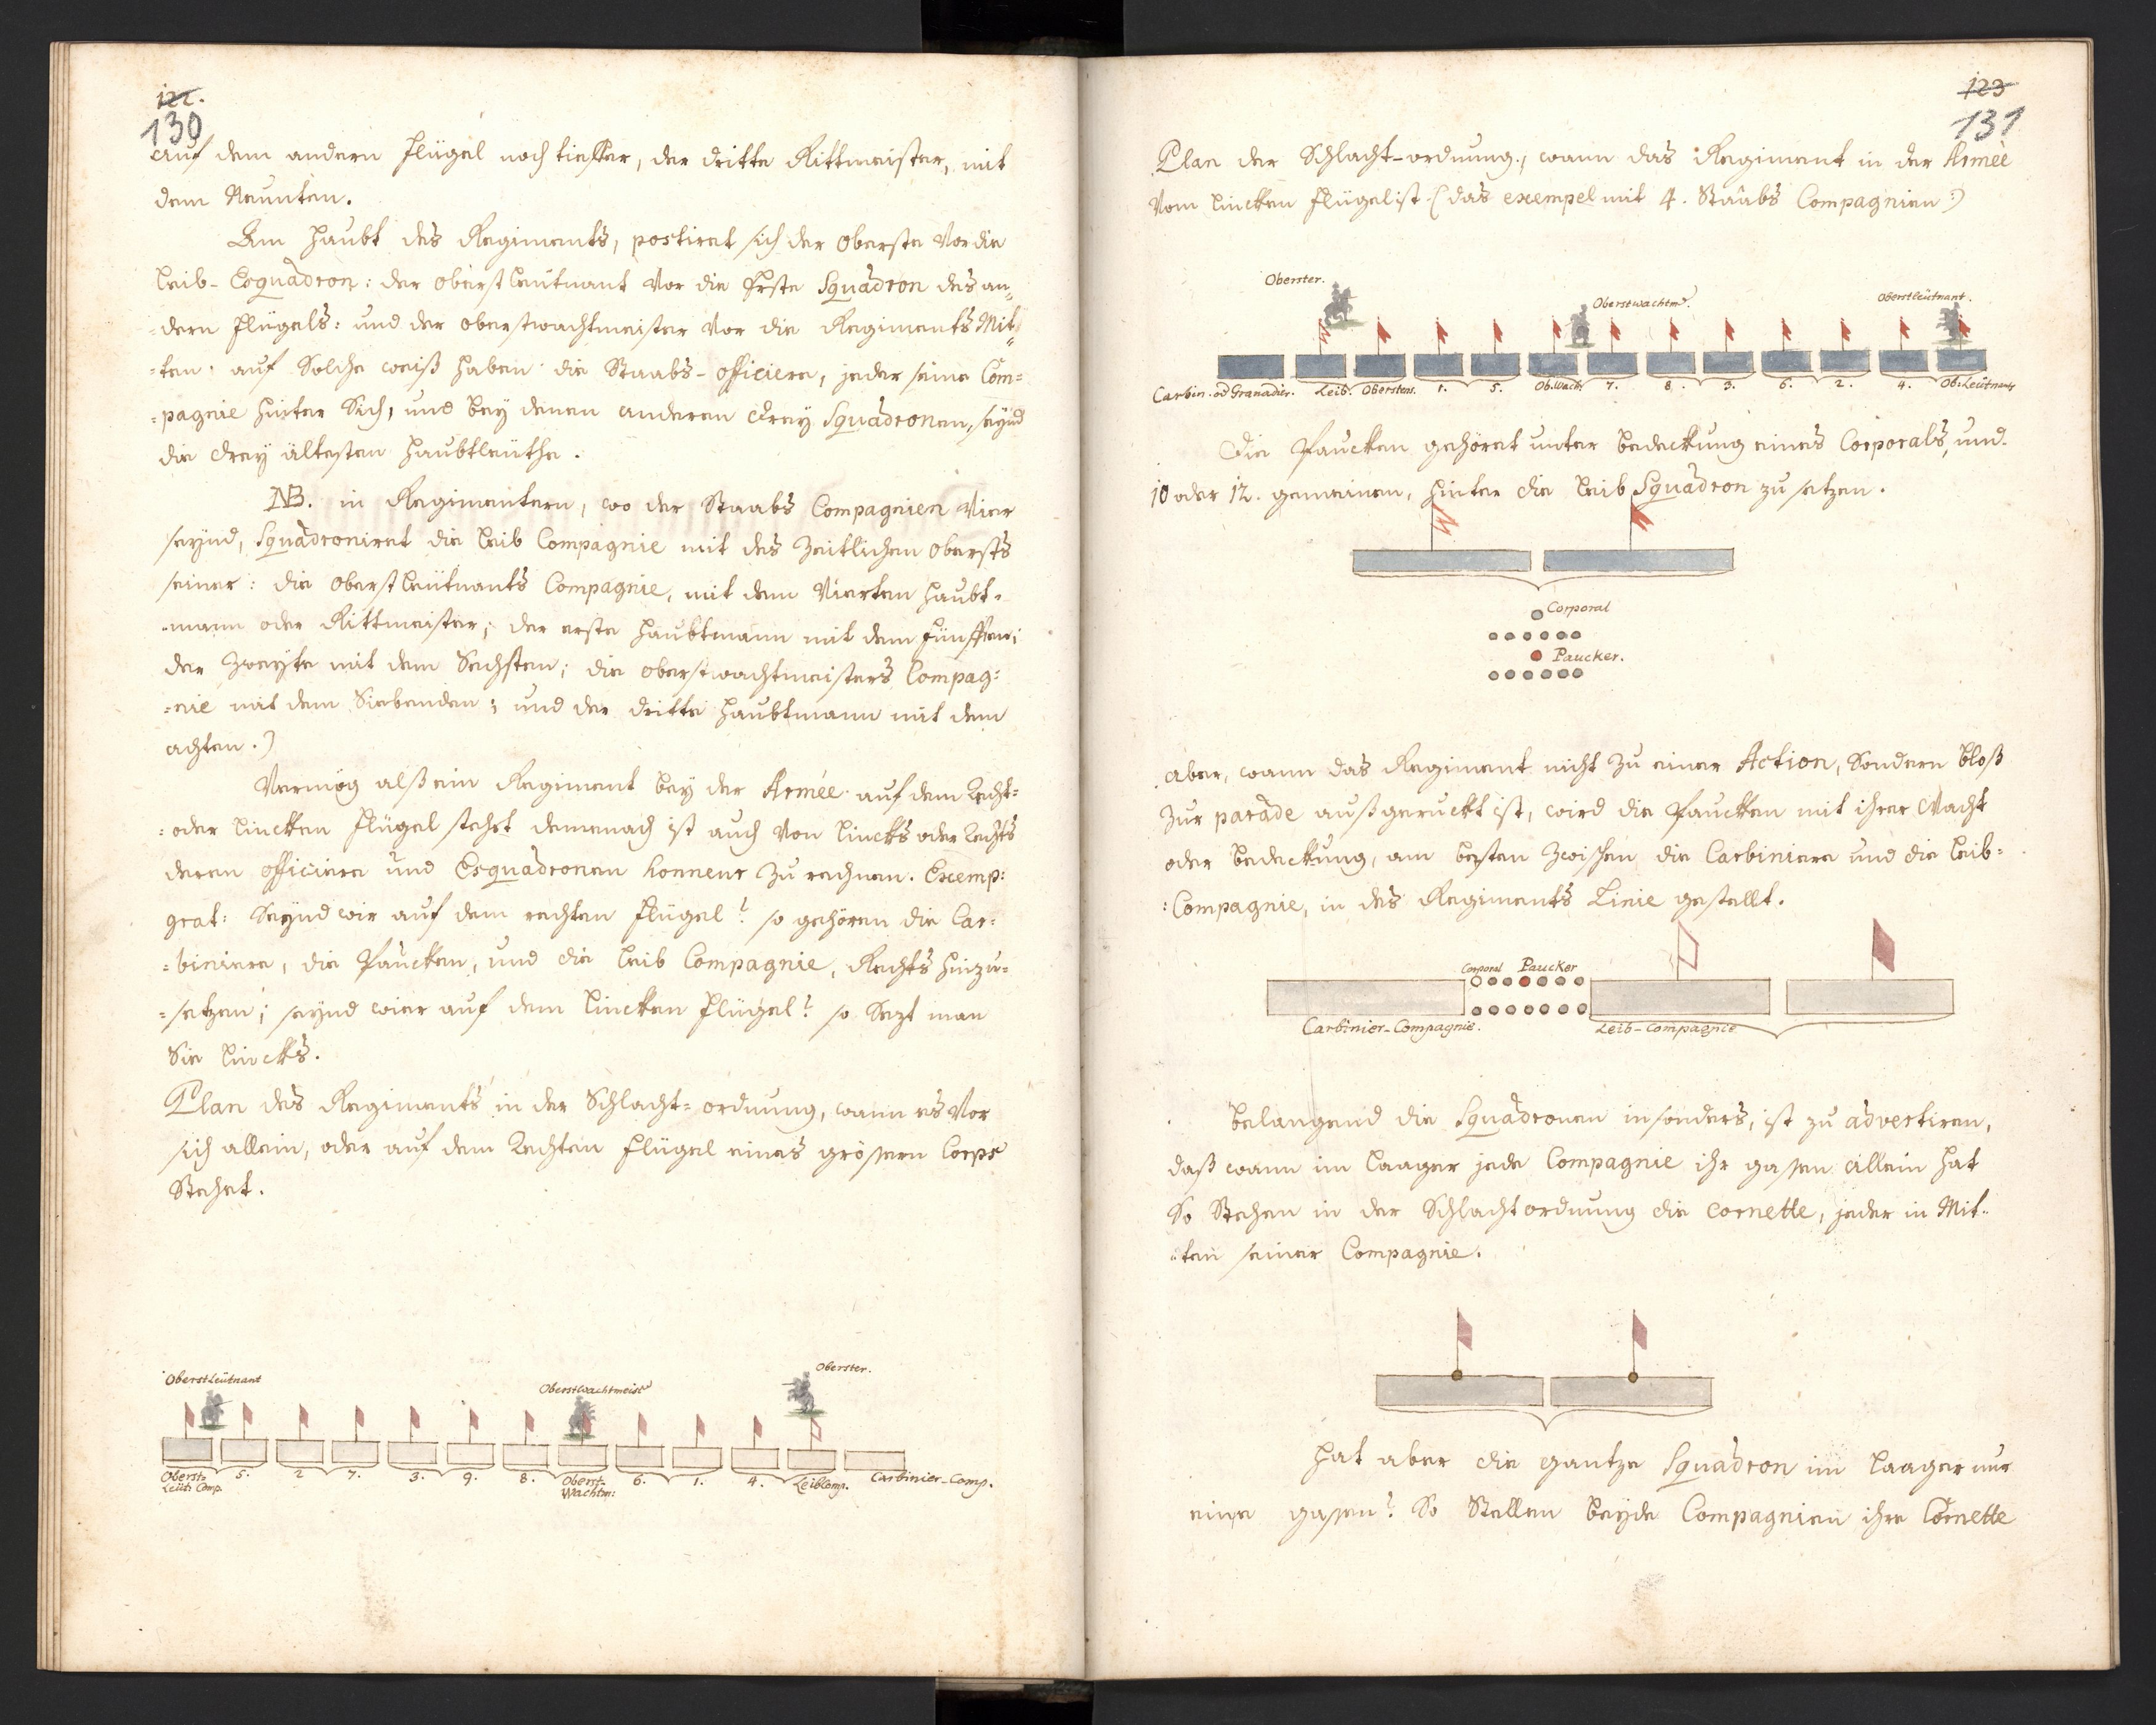 122.
130
auf dem andern flügel noch tieffer, der dritte Rittmeister, mit
dem Neunten.
Am Haubt des Regiments, postiret sich der Oberste Vor die
Leib-Esquadron: der Oberstleütnant Vor die Erste Squadron des an„
„dern flügels: und der Oberstwachtmeister Vor die Regiments Mit„
„ten: auf Solche weiß haben die Staabs-officiere, jeder seine Com=
=pagnie hinter Sich, und bey denen anderen drey Squadronen, seynd
die drey ältesten Haubtleüthe.
NB. in Regimentern, wo der Staabs Compagnien Vier
seynd, Squadroniret die Leib Compagnie mit des zeitlichen Obersts
seiner: die Oberstleütnants Compagnie, mit dem Vierten Haubt-
-mann oder Rittmeister; der erste Haubtmann mit dem fünfften;
der Zweyte mit dem Sechsten; die Oberstwachtmeisters Compag=
=nie mit dem Siebenden; und der dritte Haubtmann mit dem
achten.)
Vermög alß ein Regiment bey der Armée auf dem Recht=
=oder Lincken flügel stehet demenach ist auch Von Lincks oder Rechts
deren officiere und Esquadronen honneur zu rechnen. Exemp:
grat: Seynd wir auf dem rechten flügel? so gehören die Car=
=biniere, die Paucken, und die Leib Compagnie, Rechts hinzu=
=setzen; seynd wier auf dem Lincken flügel? so Sezt man
Sie Lincks.
Plan des Regiments in der Schlacht=ordnung, wann es Vor
sich allein, oder auf dem Rechten flügel eines grössern Corps
Stehet.
OberstLeütnant
Oberstwachtmeistr
Oberster.
Oberst= Leüt: Comp.
5.
2
7.
3.
9.
8.
Oberst= Wachtm:
6.
1.
4.
LeibComp.
Carbinier-Comp.
123
131
Plan der Schlacht-ordnung, wann das Regiment in der Armèe
Vom Lincken flügel ist (das exempel mit 4. Staabs Compagnien:)
Oberster.
Oberstwachtmr.
Oberstleütnant.
Carbin. od Granadier.
Leib.
Obersten.
1.
5.
Ob.Wach.
7.
8.
3.
6.
2.
4.
Ob:Leütnants
Die Paucken gehöret unter Bedeckung eines Corporals, und
10 oder 12. gemeinen, hinter die Leib Squadron zu setzen.
Corporal
Paucker.
Aber, wann das Regiment nicht zu einer Action, Sondern bloß
Zur parade außgeruckt ist, wird die Paucken mit ihrer Wacht
oder Bedeckung, am besten zwischen die Carbiniere und die Leib=
:Compagnie, in des Regiments Linie gestellt.
Corporal Paucker
Carbinier-Compagnie.
Leib-Compagnie
Belangend die Squadronen insonders, ist zu advertiren,
daß wann im Laager jede Compagnie ihr gassen allein hat
So Stehen in der Schlachtordnung die cornette, jeder in Mit„
„ten seiner Compagnie.
Hat aber die gantze Squadron im Laager nur
eine gassen? So Stellen beyde Compagnien ihre Cornette